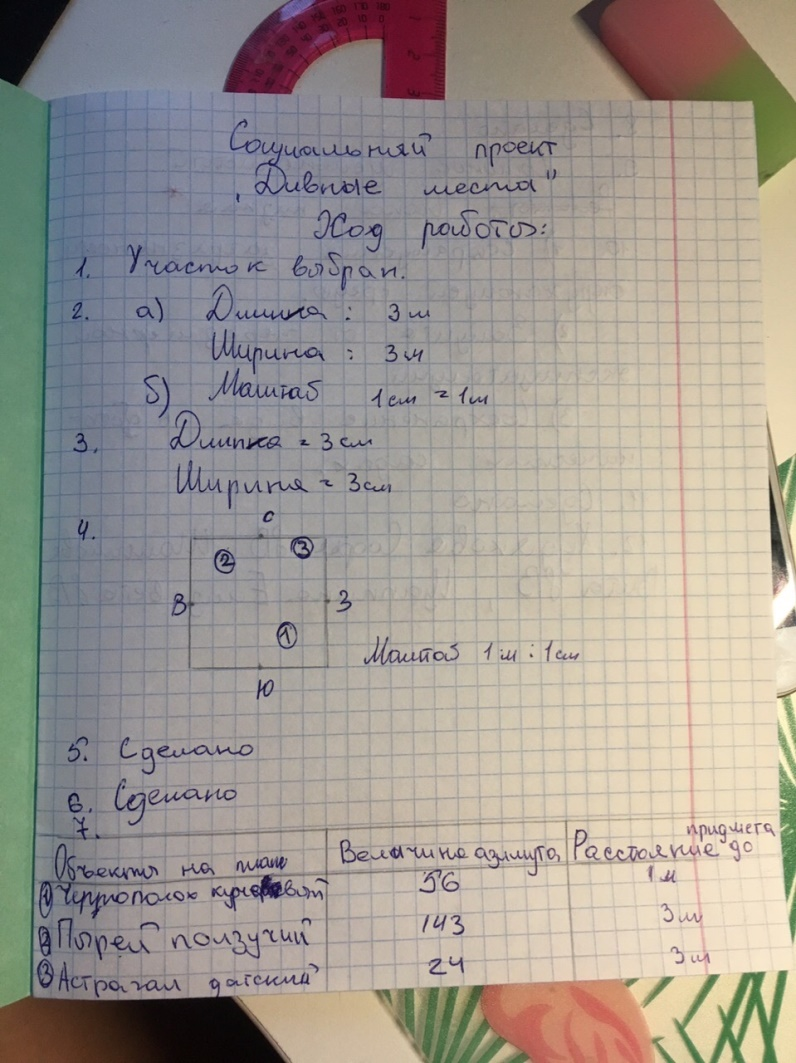 Социальный проект
„Дивные места"
Ход работы:
1. Участок выбран.
2. а) Длинна: 3 м
Ширина: 3 м
б) Маштаб 1 см = 1 м
3. Длинна = 3 см
Ширина = 3 см
4. С
② ③
В З
①
Маштаб 1 м : 1 см
Ю
5. Сделано
6. Сделано
7.
Объекты на плане Величина азимута Расстояние до придмета
① 56 1 м
② Пырей ползучий 143 3 м
③ Астрагал датский 24 3 м